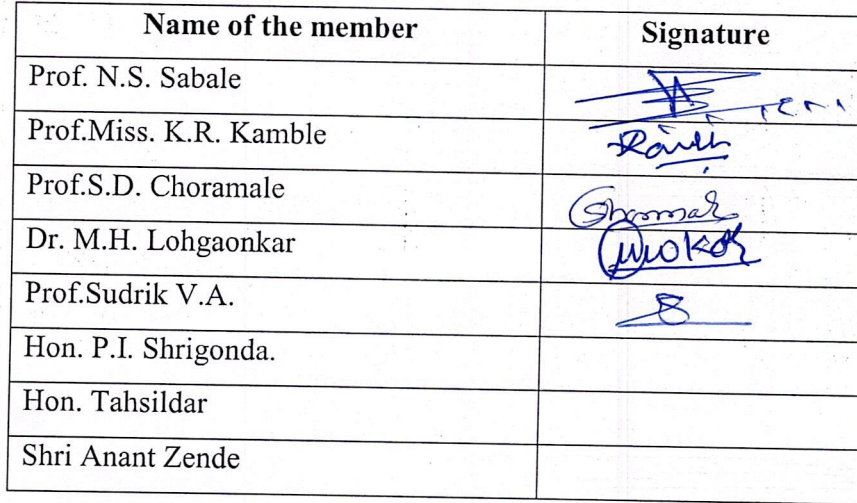 Name of the member Signature
Prof. N.S. Sabale
Prof.Miss. K.R. Kamble
Prof.S.D. Choramale
Dr. M.H. Lohgaonkar
Prof.Sudrik V.A.
Hon. P.I. Shrigonda.
Hon. Tahsildar
Shri Anant Zende